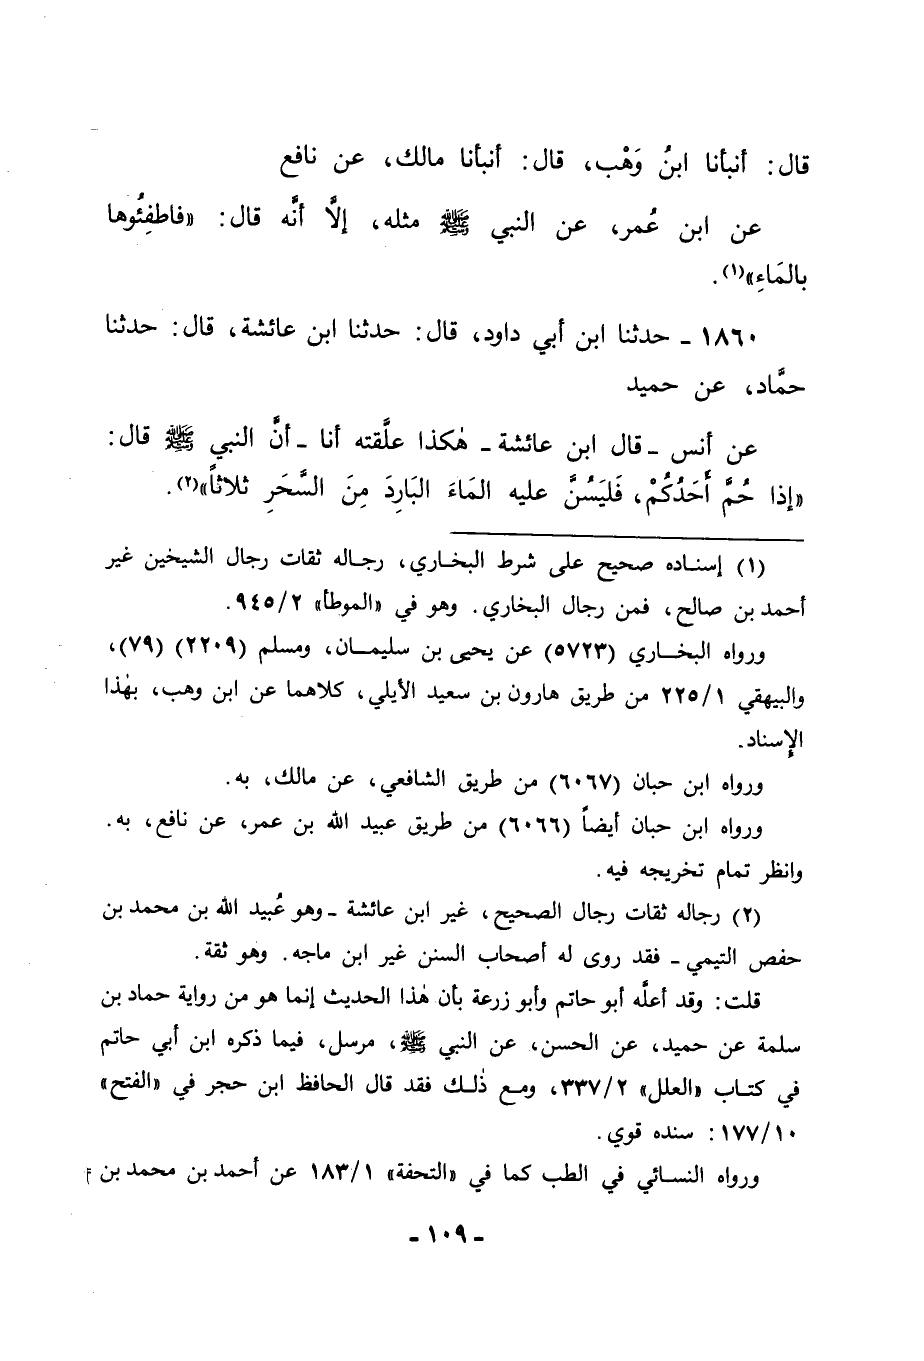 قال: أنبأنا ابنُ وَهْب، قال: أنبأنا مالك، عن نافع
عن ابن عُمر، عن النبي ﷺ مثله، إلَّا أنَّه قال: «فاطفِئُوها
بالمَاءِ»(١).
١٨٦٠ ـ حدثنا ابن أبي داود، قال: حدثنا ابن عائشة، قال: حدثنا
حمَّاد، عن حميد
عن أنس ـ قال ابن عائشة ـ هٰكذا علَّقته أنا ـ أنَّ النبي ﷺ قال:
«إذا حُمَّ أَحَدُكُمْ، فَليَسُنَّ عليه المَاءَ البَارِدَ مِنَ السَّحَرِ ثلاثاً»(٢).
(١) إسناده صحيح على شرط البخاري، رجاله ثقات رجال الشيخين غير
أحمد بن صالح، فمن رجال البخاري. وهو في «الموطأ» ٩٤٥/٢.
ورواه البخاري (٥٧٢٣) عن يحيى بن سليمان، ومسلم (٢٢٠٩) (٧٩)،
والبيهقي ٢٢٥/١ من طريق هارون بن سعيد الأيلي، كلاهما عن ابن وهب، بهٰذا
الإسناد.
ورواه ابن حبان (٦٠٦٧) من طريق الشافعي، عن مالك، به.
ورواه ابن حبان أيضاً (٦٠٦٦) من طريق عبيد الله بن عمر، عن نافع، به.
وانظر تمام تخريجه فيه.
(٢) رجاله ثقات رجال الصحيح، غير ابن عائشة ـ وهو عُبيد الله بن محمد بن
حفص التيمي ـ فقد روى له أصحاب السنن غير ابن ماجه. وهو ثقة.
قلت: وقد أعلَّه أبو حاتم وأبو زرعة بأن هٰذا الحديث إنما هو من رواية حماد بن
سلمة عن حميد، عن الحسن، عن النبي ﷺ، مرسل، فيما ذكره ابن أبي حاتم
في كتاب «العلل» ٣٣٧/٢، ومع ذٰلك فقد قال الحافظ ابن حجر في «الفتح»
١٧٧/١٠: سنده قوي.
ورواه النسائي في الطب كما في «التحفة» ١٨٣/١ عن أحمد بن محمد بن =
ـ ١٠٩ ـ